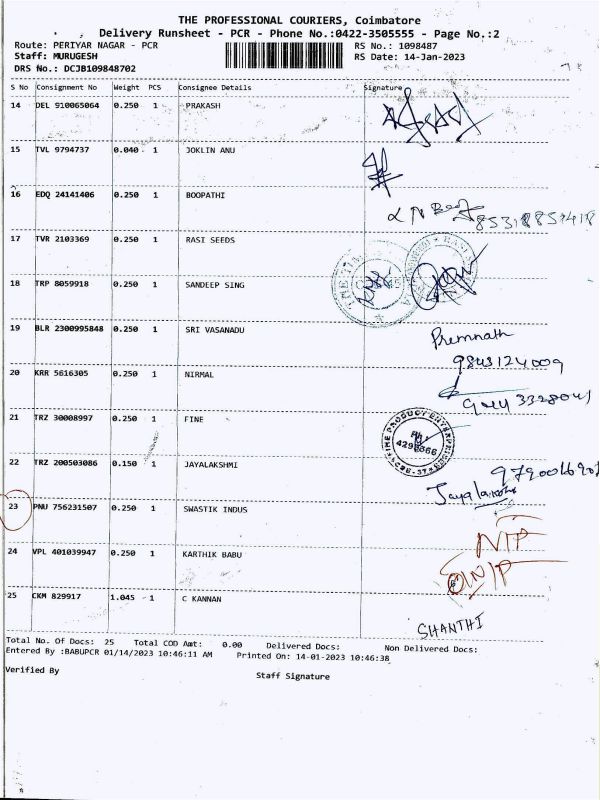 THE PROFESSIONAL COURIERS, Coimbatore
Delivery Runsheet - PCR - Phone No.:0422-3505555 - Page No.:2
Route: PERIYAR NAGAR - PCR RS No.: 1098487
Staff: MURUGESH RS Date: 14-Jan-2023
DRS No.: DCJB109848702
S No Consignment No Weight PCS Consignee Details Signature
14 DEL 910065064 0.250 1 PRAKASH
15 TVL 9794737 0.040 1 JOKLIN ANU
16 EDQ 24141406 0.250 1 BOOPATHI
17 TVR 2103369 0.250 1 RASI SEEDS
18 TRP 8059918 0.250 1 SANDEEP SING
19 BLR 2300995848 0.250 1 SRI VASANADU
Premnath
9843124009
20 KRR 5616305 0.250 1 NIRMAL
21 TRZ 30008997 0.250 1 FINE
22 TRZ 200503086 0.150 1 JAYALAKSHMI
Jayalakshmi
23 PNU 756231507 0.250 1 SWASTIK INDUS
N/P
24 VPL 401039947 0.250 1 KARTHIK BABU
25 CKM 829917 1.045 1 C KANNAN
SHANTHI
Total No. Of Docs: 25 Total COD Amt: 0.00 Delivered Docs: Non Delivered Docs:
Entered By :BABUPCR 01/14/2023 10:46:11 AM Printed On: 14-01-2023 10:46:38
Verified By Staff Signature